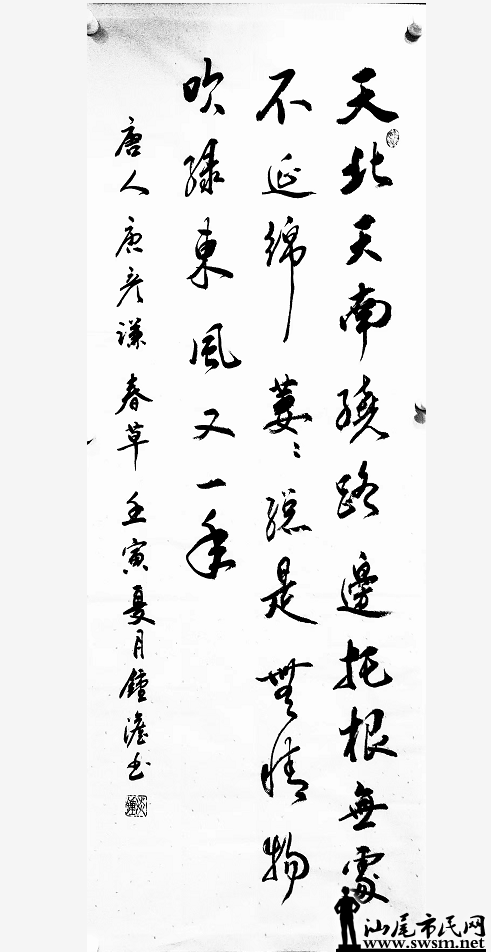 天北天南繞路邊托根無處
不延綿萋〻總是無情物
吹綠東風又一年
唐人唐彥謙春草壬寅夏月鐘澹書
汕尾市民网
www.swsm.net